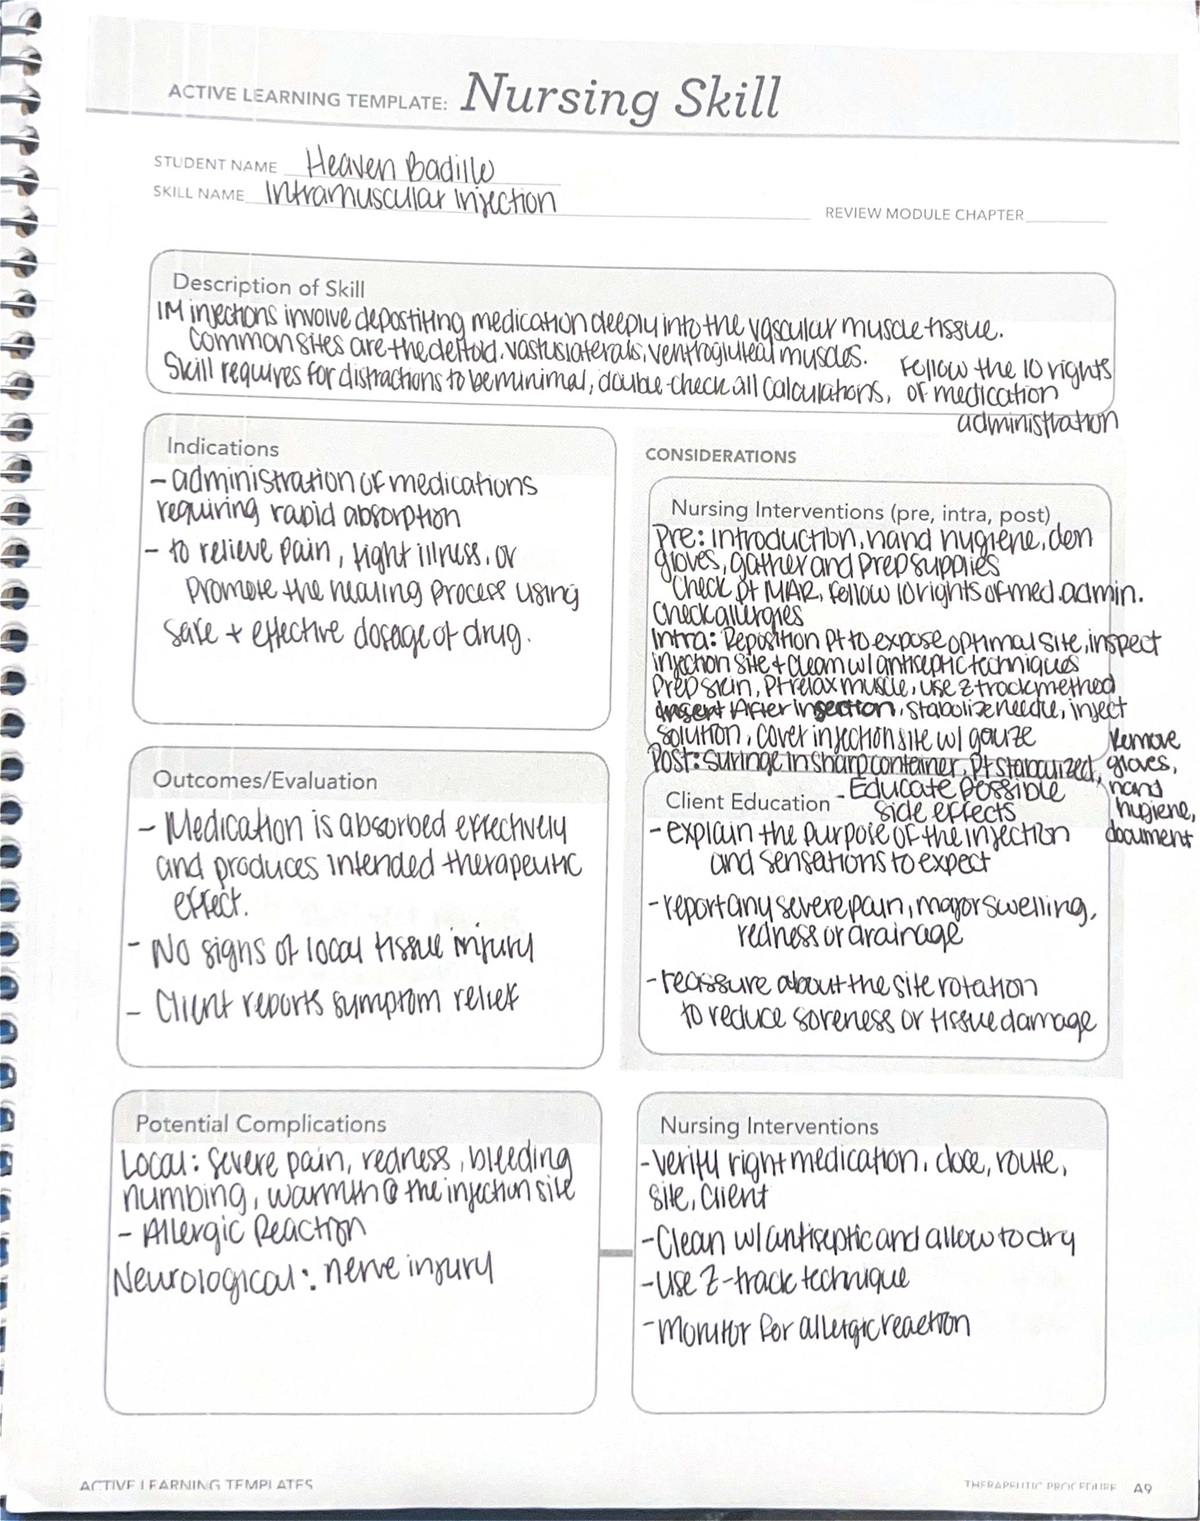 ACTIVE LEARNING TEMPLATE: Nursing Skill
STUDENT NAME Heaven Badillo
SKILL NAME Intramuscular Injection
REVIEW MODULE CHAPTER
Description of Skill
IM injections involve depostiting medication deeply into the vascular muscle tissue.
Common sites are the deltoid, vastus laterals, ventrogluteal muscles.
Skill requires for distractions to be minimal, double-check all calculations,
Follow the 10 rights
of medication
administration
Indications
- administration of medications
requiring rapid absorption
- to relieve pain, fight illness, or
promote the healing process using
safe + effective dosage of drug.
CONSIDERATIONS
Nursing Interventions (pre, intra, post)
Pre: introduction, hand hygiene, don
gloves, gather and prep supplies
Check pt MAR, follow 10 rights of med. admin.
Check allergies
Intra: Reposition Pt to expose optimal site, inspect
injection site + clean w/ antiseptic techniques
Prep skin, Pt relax muscle, use z track method
After insertion, stabolize needle, inject
solution, cover injection site w/ gauze
Post: Suringe in sharp container, Pt stabalized,
Remove
gloves,
hand
hygiene,
document
Outcomes/Evaluation
- Medication is absorbed effectively
and produces intended therapeutic
effect.
- No signs of local tissue injury
- Client reports symptom relief
Client Education
- Educate possible
side effects
- explain the purpose of the injection
and sensations to expect
- report any severe pain, major swelling,
redness or drainage
- reassure about the site rotation
to reduce soreness or tissue damage
Potential Complications
Local: severe pain, redness, bleeding
numbing, warmth @ the injection site
- Allergic Reaction
Neurological: nerve injury
Nursing Interventions
- Verify right medication, dose, route,
site, client
- Clean w/ antiseptic and allow to dry
- Use Z-track technique
- Monitor for allergic reaction
ACTIVE LEARNING TEMPLATES
THERAPEUTIC PROCEDURE A9